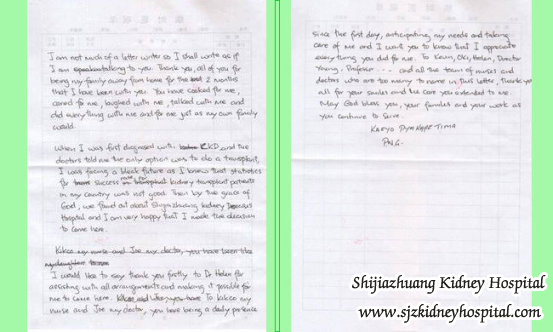 I am not much of a letter writer so I shall write as if
I am talking to you. Thank you, all of you for
being my family away from home for the 2 months
that I have been with you. You have cooked for me,
cared for me, laughed with me, talked with me and
did everything with me and for me yet as my own family
would.
When I was first diagnosed with CKD and the
doctors told me the only option was to do a transplant,
I was facing a bleak future as I knew that statistics
for success rate kidney transplant patients
in my country was not good. Then by the grace of
God, we found out about Shijiazhuang kidney
Hospital and I am very happy that I made the decision
to come here.
Kikoo my nurse and Joe my doctor, you have been like
I would like to say thank you firstly to Dr Helen for
assisting with all arrangements and making it possible for
me to come here. To Kikoo my
nurse and Joe my doctor, you have being a daily presence
since the first day, anticipating my needs and taking
care of me and I want you to know that I appreciate
everything you did for me. To Kevin, Oki, Helen, Director
Young, Professor ... and all the team of nurses and
doctors who are too many to name in this letter, thank you
all for your smiles and the care you extended to me.
May God bless you, your families and your work as
you continue to serve.
PNG.
Shijiazhuang Kidney Hospital
www.sjzkidneyhospital.com